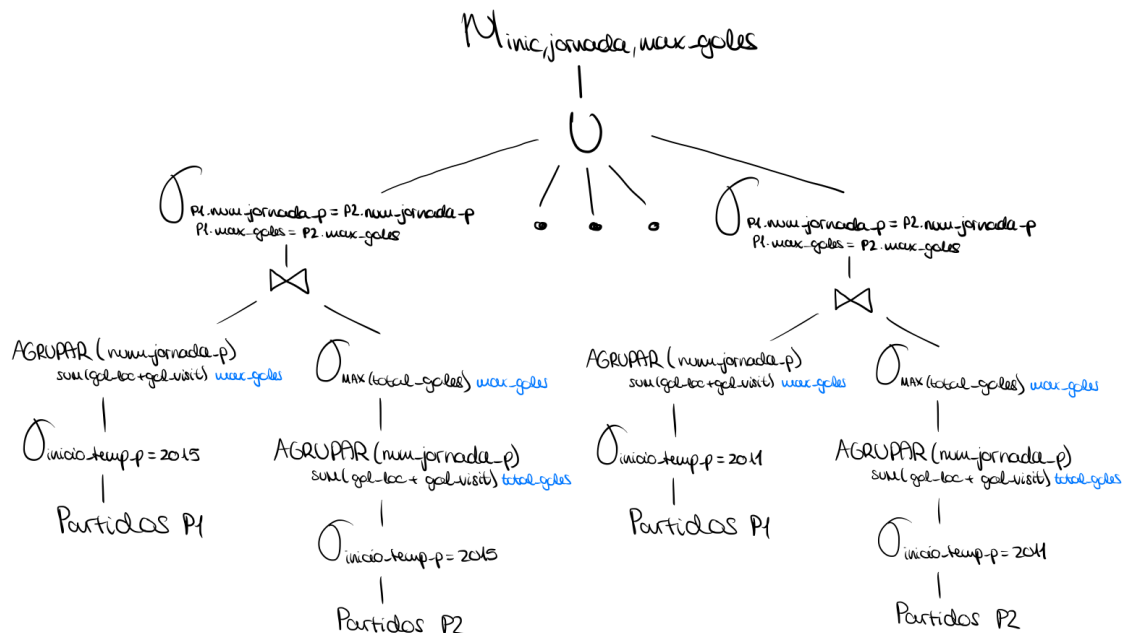 π inic,jornada,max_goles
∪
σ P1.num-jornada_p = P2.num-jornada_p
P1.max_goles = P2.max_goles
⋈
AGRUPAR (num-jornada_p)
SUM(gol-loc+gol-visit) max-goles
σ inicio-temp-p = 2015
Partidos P1
σ MAX(total-goles) max-goles
AGRUPAR (num-jornada_p)
SUM(gol-loc + gol-visit) total-goles
σ inicio-temp-p = 2015
Partidos P2
σ P1.num-jornada_p = P2.num-jornada_p
P1.max_goles = P2.max_goles
⋈
AGRUPAR (num-jornada_p)
SUM(gol-loc+gol-visit) max-goles
σ inicio-temp-p = 2011
Partidos P1
σ MAX(total-goles) max-goles
AGRUPAR (num-jornada_p)
SUM(gol-loc + gol-visit) total-goles
σ inicio-temp-p = 2011
Partidos P2